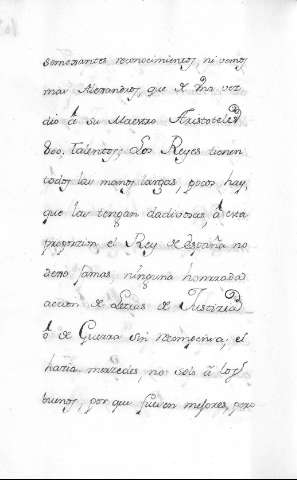 semexantes reconocimientos, ni vemos
mas Alexandros, que de una vez
dió á su Maestro Aristoteles
800. Talentos; Los Reyes tienen
todos las manos largas, pocos hay,
que las tengan dadivosas, á esta
proporcion, el Rey de españa no
dexo jamas ninguna honrrada
accion de Letras de Justizia
ó de Guerra sin recompensa, el
hazia mercedes, no solo á los
buenos, por que fuesen mejores, pero